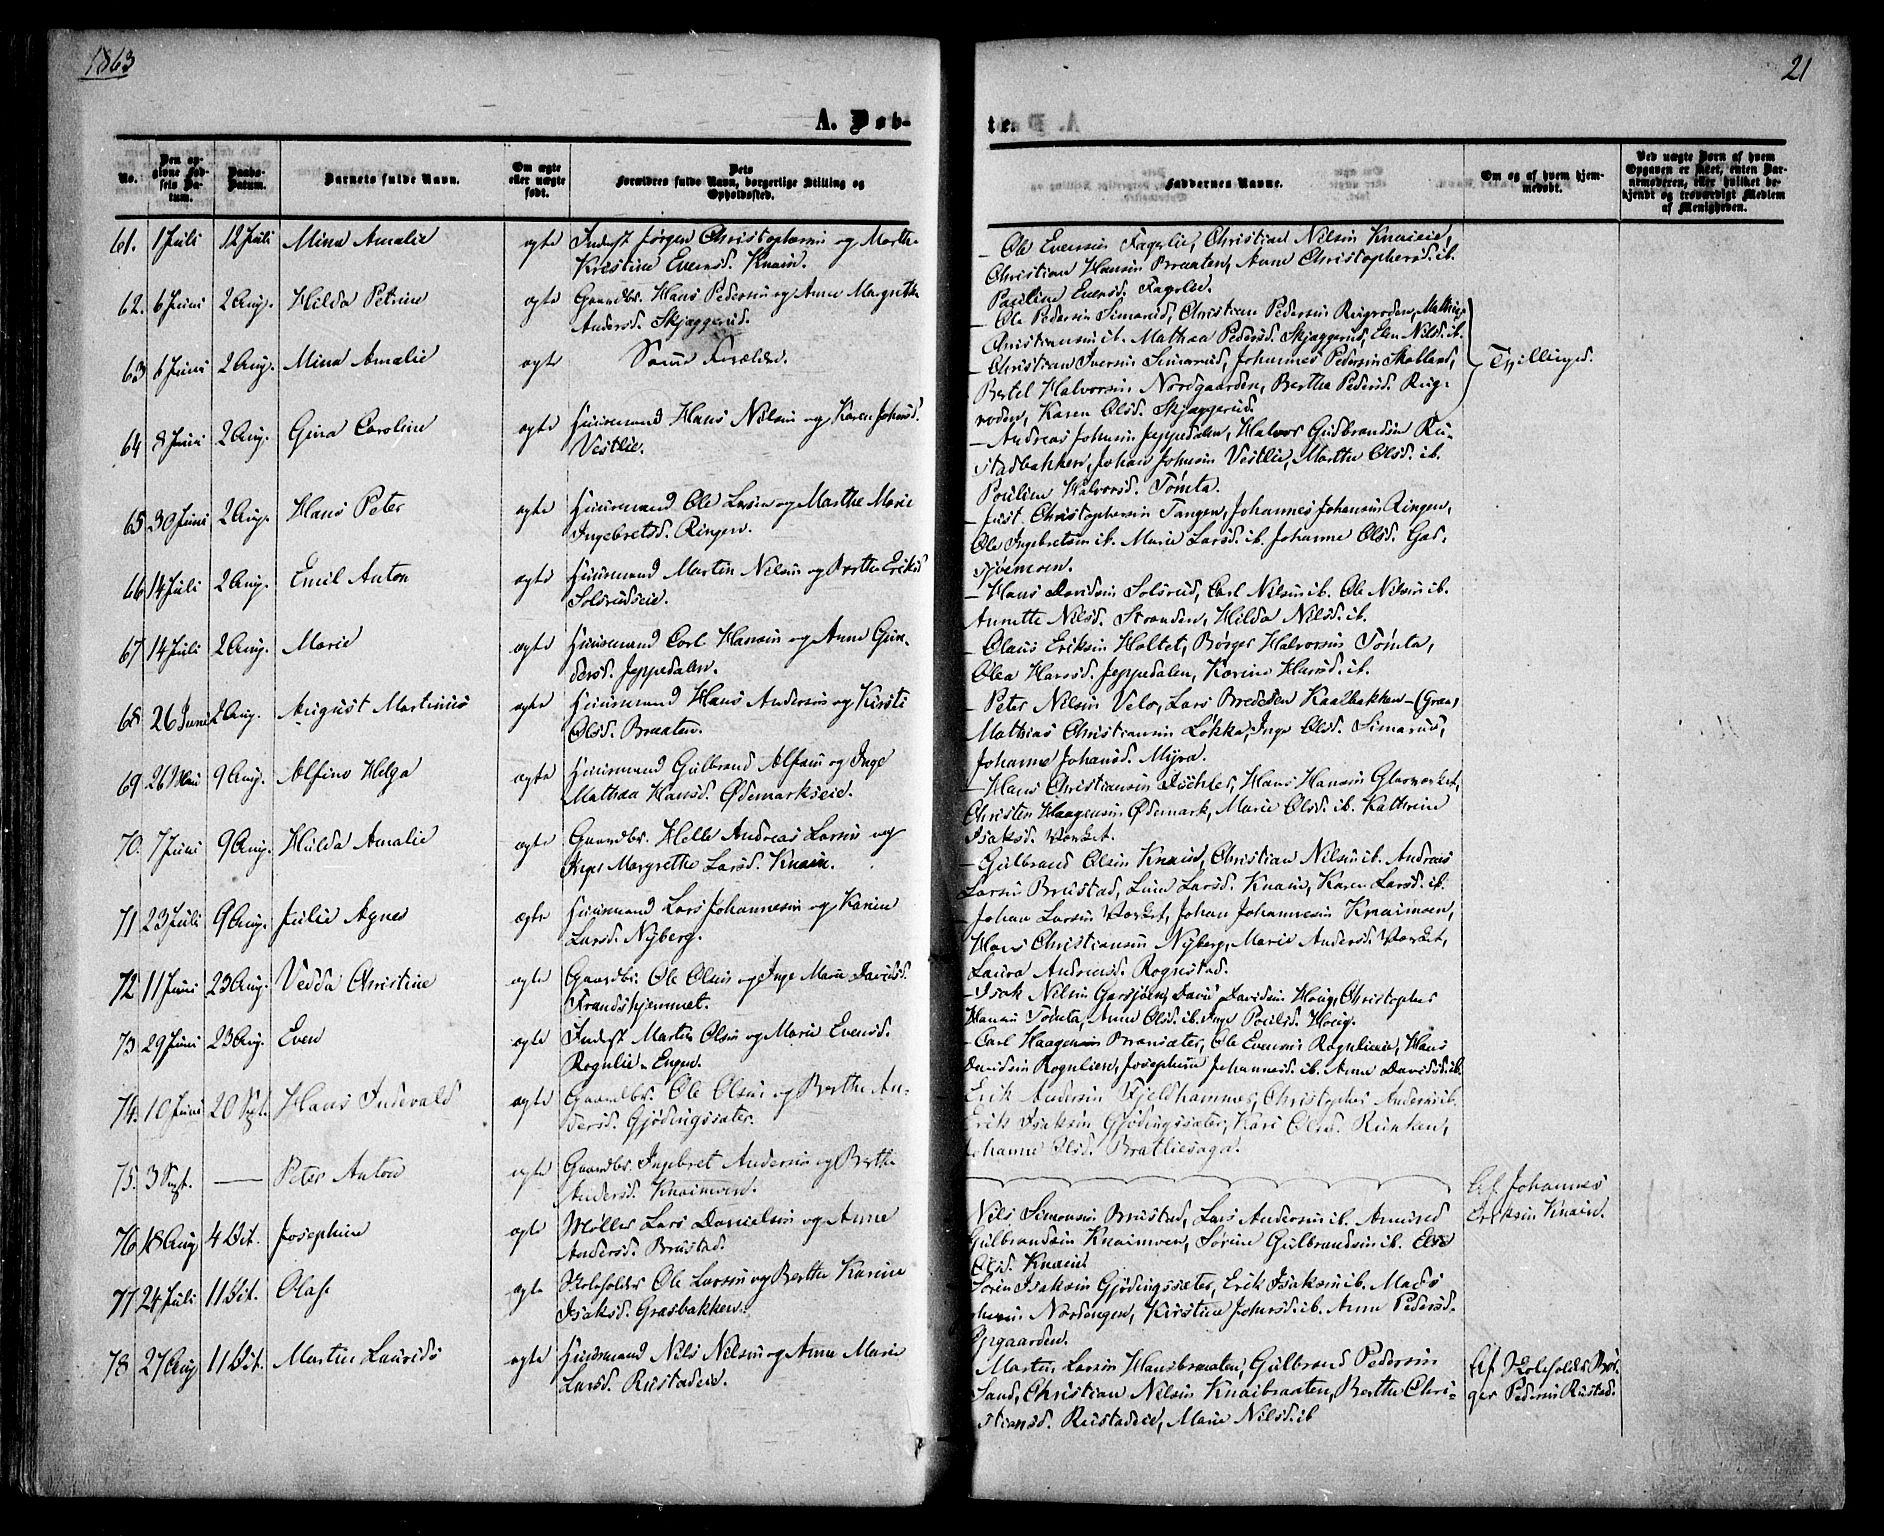 1863
21
A. Døb-
te.
No.
Den op-
givne Fød-
sels Da-
tum.
Daabs-
Datum.
Barnets fulde Navn.
Om ægte
eller uægte
født.
Dets
Forældres fulde Navn, borgerlige Stilling og
Opholdssted.
Faddernes Navne.
Om og af hvem hjem-
medøbt.
Ved uægte Børn af hvem
Opgaven er skeet, enten Bar-
nemoderen, eller hvilket be-
kjendt og troværdigt Medlem
af Menigheden.
61. 1 Juli 12 Juli Mina Amalie ægte Inderst Jørgen Christophersen og Marthe
Kristine Evensd. Knain.
Ole Evensen Fagerlie, Christian Nilsen Knaieie,
Christian Hansen Braaten, Anne Christophersd. ib.
Pauline Evensd. Fagerlie.
62. 6 Juni 2 Aug. Hilda Petrine ægte Gaardbr. Hans Pedersen og Anne Margrethe
Andersd. Skjæggerud.
Ole Pedersen Simarud, Christian Pedersen Rugroden, Mathias
Christiansen ib. Mathea Pedersd. Skjæggerud, Elen Nilsd. ib.
Tvillinger.
63 6 Juni 2 Aug. Mina Amalie ægte Samme Forældre.
Christian Iversen Simarud, Johannes Pedersen Skotland,
Bertel Halvorsen Nordgaarden, Berthe Pedersd. Rug-
roden, Karen Olsd. Skjæggerud.
64 8 Juni 2 Aug. Gina Caroline ægte Huusmand Hans Nilsen og Karen Johansd.
Vestlie.
Andreas Johnsen Jeppedalen, Halvor Gudbrandsen Ru-
stadbakken, Johan Johnsen Vestlie, Marthe Olsd. ib.
Pauline Halvorsd. Tømta.
65 30 Juni 2 Aug. Hans Peter ægte Huusmand Ole Larsen og Marthe Marie
Ingebretsd. Ringen.
Just Christophersen Tangen, Johannes Johansen Ringen,
Ole Ingebretsen ib. Marie Larsd. ib. Johanne Olsd. Gar-
sjøemoen.
66 14 Juli 2 Aug. Emil Anton ægte Huusmand Martin Nilsen og Berthe Eriksd.
Solsrudeie.
Hans Davidsen Solsrud, Carl Nilsen ib. Ole Nilsen ib.
Annette Nilsd. Stranden, Hilda Nilsd. ib.
67 14 Juli 2 Aug. Marie ægte Huusmand Carl Hansen og Anne Gun-
dersd. Jeppedalen.
Olaus Eriksen Holtet, Børger Halvorsen Tømta,
Olea Hansd. Jeppedalen, Karine Hansd. ib.
68 26 Juni Aug. August Martinius ægte Huusmand Hans Andersen og Kirsti
Olsd. Braaten.
Peter Nilsen Velo, Lars Brededen Kaalbakken (Gran)
Mathias Christiansen Løkka, Inge Olsd. Simarud,
Johanne Johansd. Myra.
69 26 Mai 9 Aug. Alfine Helga ægte Huusmand Gulbrand Alfsen og Inge
Mathea Hansd. Ødemarkseie.
Hans Christiansen, Hans Hansen Glasværket,
Christen Haagensen Ødemark, Marie Olsd. ib. Kathrine
Isaksd. Værket.
70. 7 Juni 9 Aug. Hulda Amalie ægte Gaardbr. Helle Andreas Larsen og
Inger Margrethe Larsd. Knain.
Gulbrand Olsen Knain, Christian Nilsen ib. Andreas
Larsen Brustad, Line Larsd. Knain, Karen Larsd. ib.
71 23 Juli 9 Aug. Julie Agnes ægte Huusmand Lars Johannesen og Karine
Larsd. Nyberg.
Johan Larsen Værket, Johan Johannesen Knaimoen,
Hans Christiansen Nyberg, Marie Andersd. Værket,
Laura Andreasd. Rognstad.
72 11 Juni 23 Aug. Vedda Christine ægte Gaardbr. Ole Olsen og Inge Marie Davidsd.
Trandshjemmet.
Isak Nilsen Garsjøen, David Davidsen Houg, Christopher
Hansen Tømta, Anne Olsd. ib. Inge Poulsd. Houg.
73 29 Juni 23 Aug. Even ægte Inderst Martin Olsen og Marie Evensd.
Rognlie Engen.
Carl Haagensen Bransæter, Ole Evensen Rognlieeie, Hans
Davidsen Rognlien, Josephine Johannesd. ib. Anne Davidsd. ib.
74. 10 Juni 20 Sept. Hans Indevald ægte Gaardbr. Ole Olsen og Berthe An-
dersd. Gjødingssæter.
Erik Andersen Fjeldhammer, Christopher Andersen ib.
Erik Isaksen Gjødingssæter, Kari Olsd. Runken,
Johanne Olsd. Bratliesaga.
75. 3 Sept. — Peter Anton ægte Gaardbr. Ingebret Andersen og Berthe
Andersd. Knaimoen.
Af Johannes
Eriksen Knain.
76 18 Aug 4 Oct. Josephine ægte Møller Lars Danielsen og Anne
Andersd. Brustad.
Nils Simonsen Brustad, Lars Andersen ib. Amund
Gulbrandsen Knaimoen, Sørine Gulbrandsen ib. Else
Olsd. Knain.
77 24 Juli 11 Oct. Olaf. ægte Pladsholder Ole Larsen og Berthe Karine
Isaksd. Grasbakken.
Søren Isaksen Gjødingssæter, Erik Isaksen ib. Mads
Johnsen Nordengen, Kirstine Johnsd. ib. Anne Pedersd.
Opgaarden.
78 27 Aug 11 Oct. Martin Lauridz ægte Huusmand Nils Nilsen og Anne Marie
Larsd. Rustadeie.
Martin Larsen Hansbraaten, Gulbrand Pedersen
Sand, Christian Nilsen Knaibraaten, Berthe Chri-
stiansd. Rustadeie, Marie Nilsd. ib
Af Pladsholder Bør-
ger Pedersen Rustad.